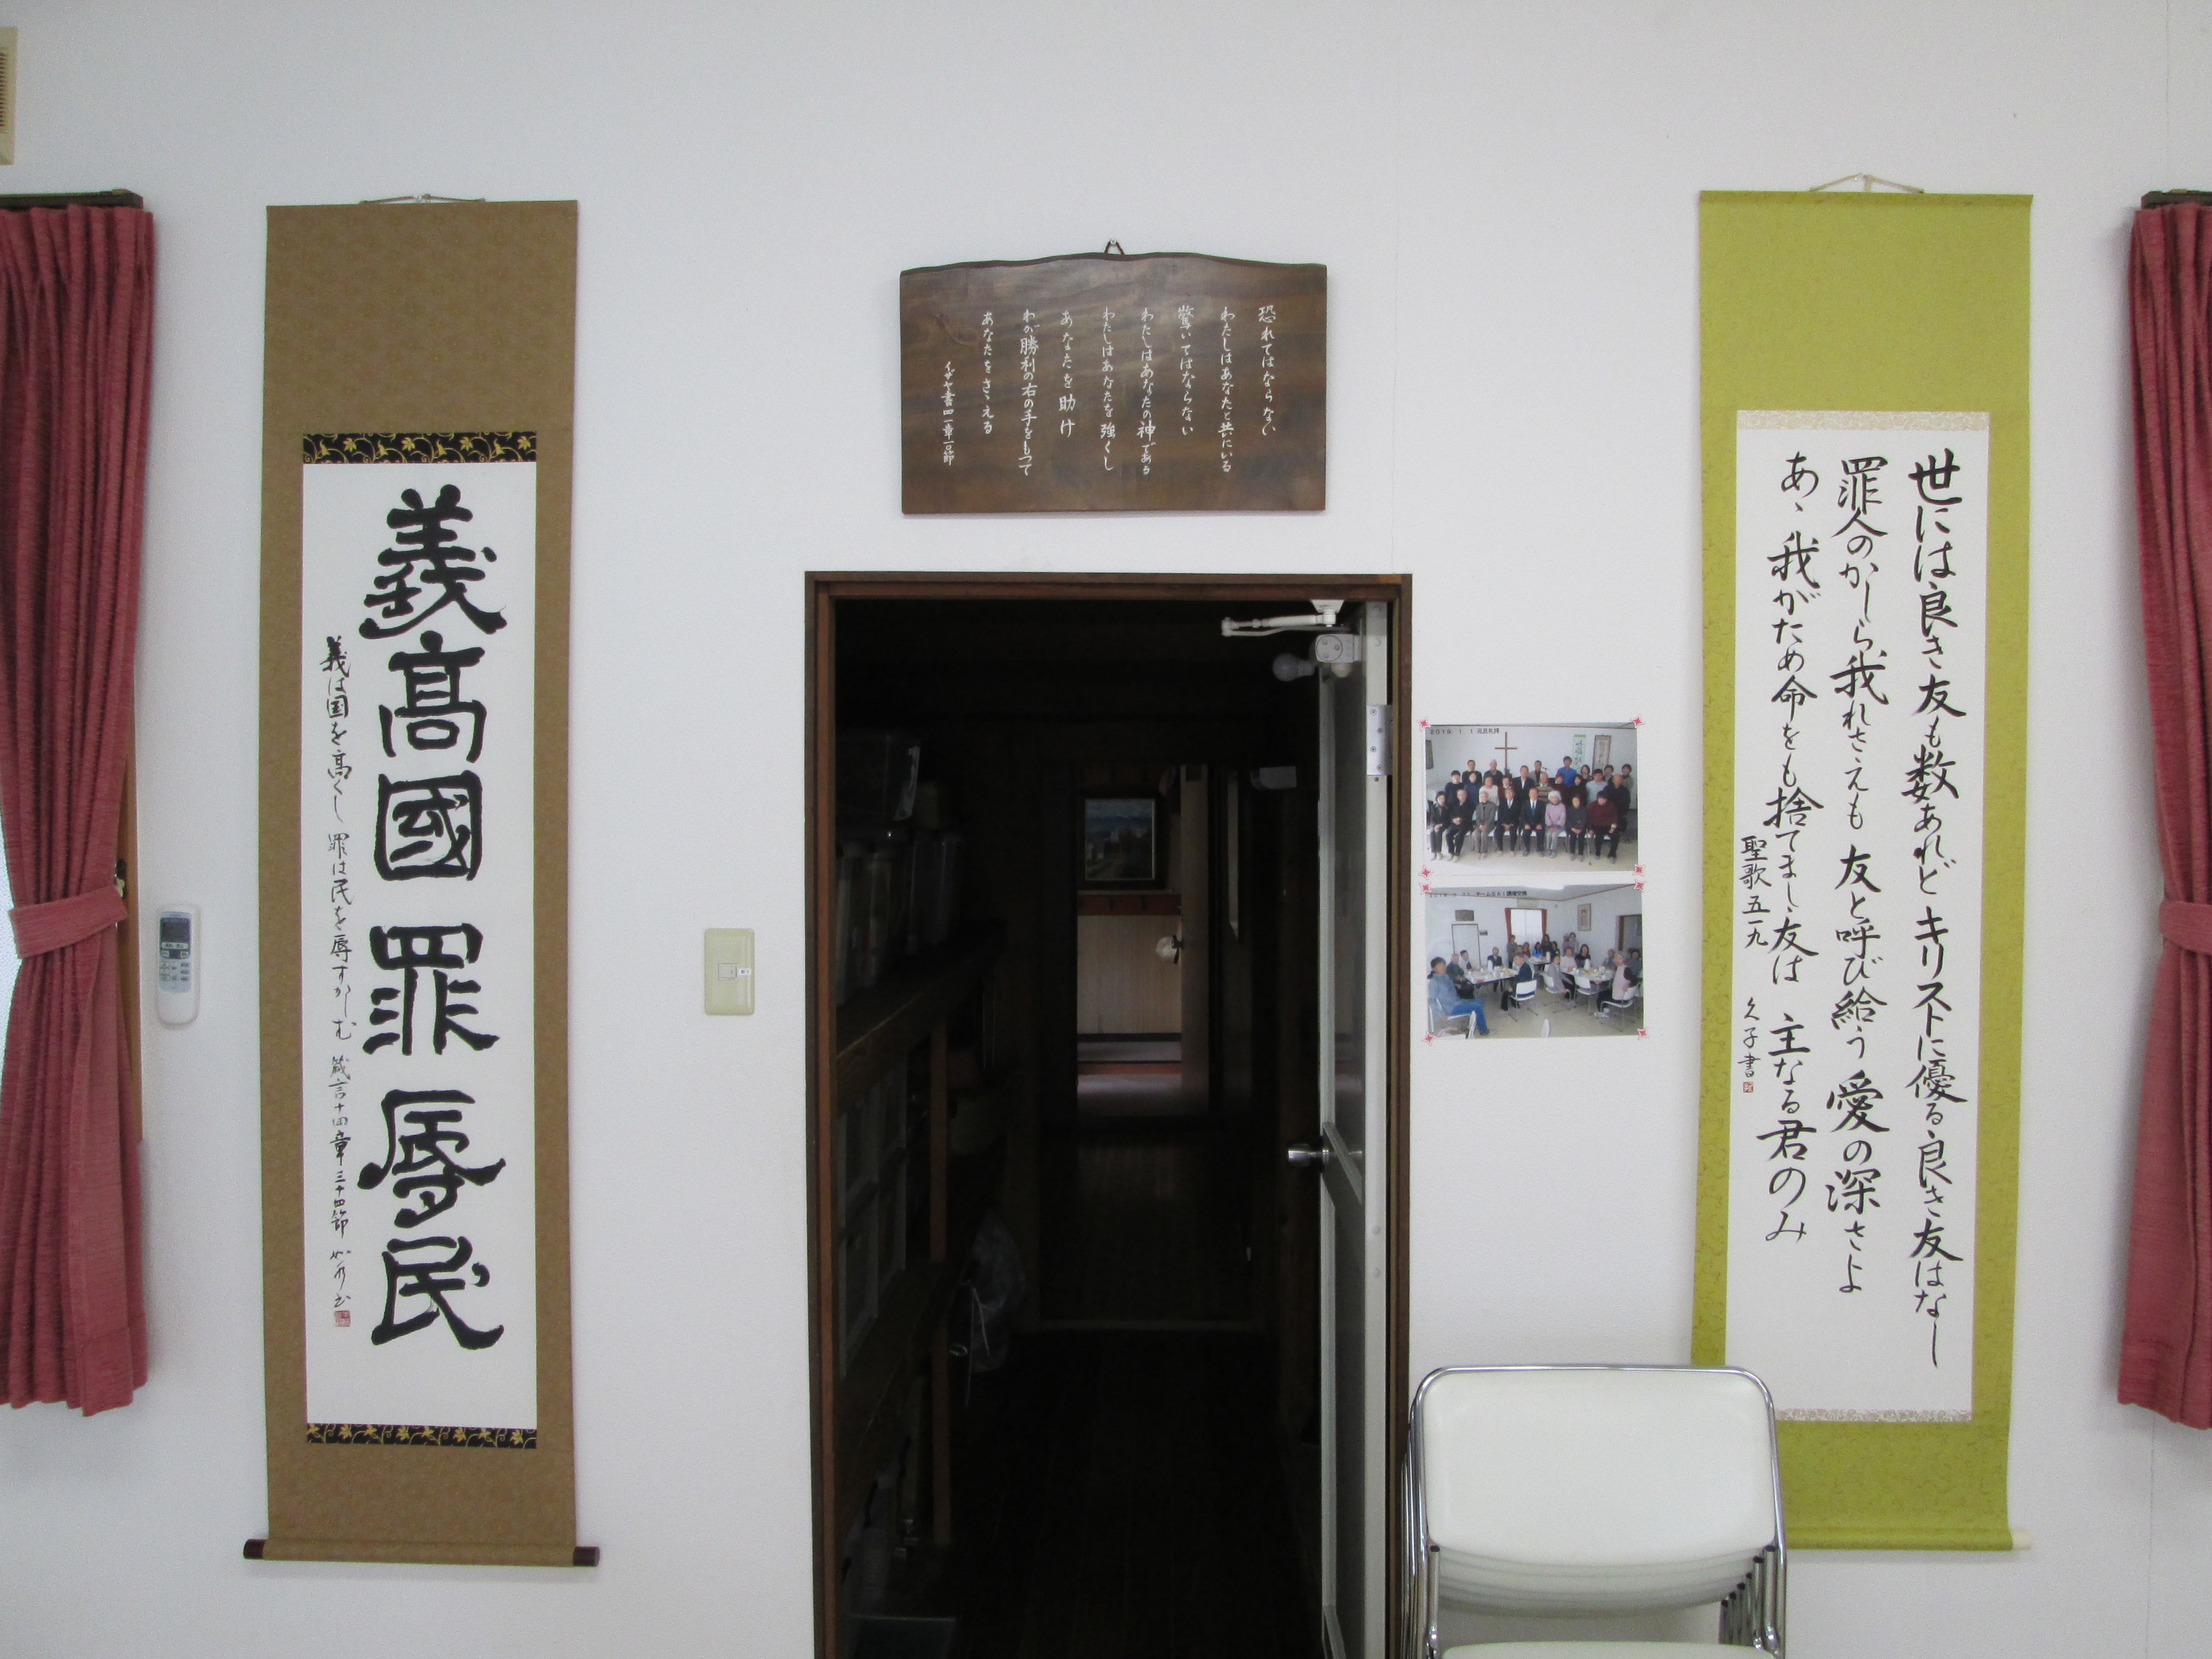 義高國罪辱民
義は国を高くし 罪は民を辱すかしむ 箴言十四章三十四節
恐れてはならない
わたしはあなたと共にいる
驚いてはならない
わたしはあなたの神である
わたしはあなたを強くし
あなたを助け
わが勝利の右の手をもって
あなたをさゝえる
イザヤ書四一章一〇節
世には良き友も数あれど キリストに優る良き友はなし
罪人のかしら我れさえも 友と呼び給う 愛の深さよ
あゝ我がため命をも捨てまし友は 主なる君のみ
聖歌五一九 久子書